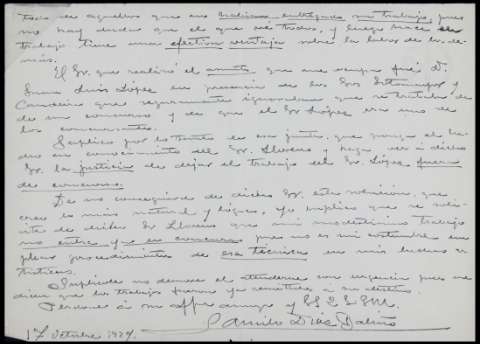 todos de aquellos que no realizaron entregado su trabajo, pues
no hay dudas que el que ve todos, y luego hace su
trabajo tiene una efectiva ventaja sobre la labor de los de-
más.
El Sr. que realizó el asunto, que me ocupa fué D.
Juan Luis López en presencia de los Srs. Sotomayor y
que seguramente ignoraban que se trataba de
de un concurso y de que el Sr. López era uno de
los concursantes.
Suplico por lo tanto en esa junta, que ponga el he-
cho en conocimiento del Sr. Llorens y haga ver á dicho
Sr. la justicia de dejar el trabajo del Sr. López fuera
de concurso.
De no conseguirse de dicho Sr. esta solución, que
creo lo más natural y lógico, yo suplico que se soli-
cite de dicho Sr. Llorens que mi modestísimo trabajo
no entre yá en concurso pues no es mi costumbre em-
plear procedimientos de esa técnica en mis luchas ar-
tísticas.
Suplicole no demore el atenderme con urgencia pues me
dicen que los trabajos fueron ya remitidos á su destino.
Perdone á su affmo amigo y SS Q E S M.
Camilo Díaz Baliño
17 Octubre 1924.